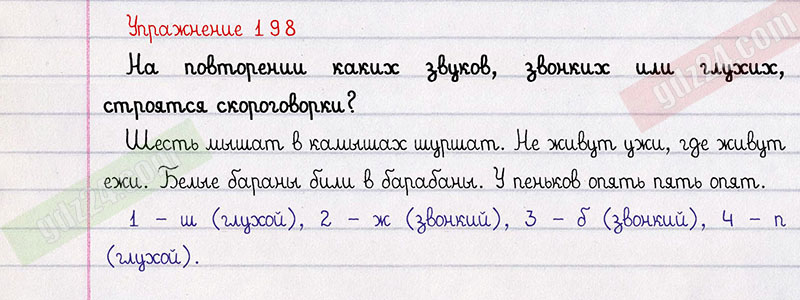 Упражнение 198
На повторении каких звуков, звонких или глухих,
строятся скороговорки?
Шесть мышат в камышах шуршат. Не живут ужи, где живут
ежи. Белые бараны били в барабаны. У пеньков опять пять опят.
1 - ш (глухой), 2 - ж (звонкий), 3 - б (звонкий), 4 - п
(глухой).
gdz24.com
gdz24.com